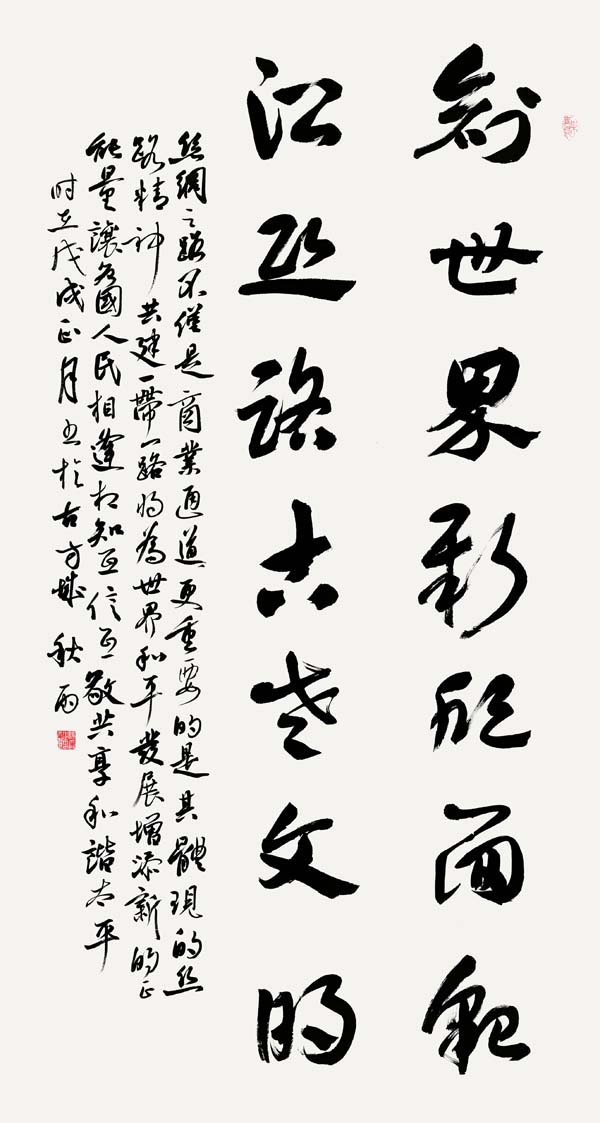 創世界新形面貌
沿丝路古老文明
丝綢之路不僅是商業通道更重要的是其體現的丝
路精神共建一帶一路将為世界和平發展增添新的正
能量讓各國人民相逢相知互信互敬共享和諧太平
时在戊戌正月书於古方城 秋雨